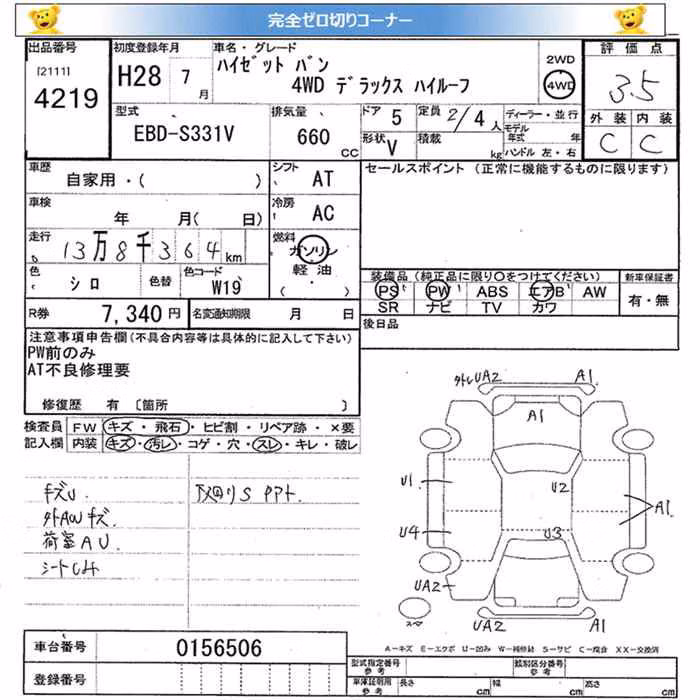 完全ゼロ切りコーナー
出品番号
[2111]
4219
初度登録年月
H28 7 月
車名・グレード
ハイゼット バン
4WD デラックス ハイルーフ
2WD
4WD
評価点
3.5
外装 内装
C C
型式
EBD-S331V
排気量
660 CC
ドア 5
形状 V
定員 2/4 人
積載 kg
ディーラー・並行
モデル年式 年
ハンドル 左・右
車歴
自家用・( )
シフト AT
セールスポイント (正常に機能するものに限ります)
車検 年 月( 日)
冷房 AC
走行 13万8千364 km
燃料 ガソリン
軽油
( ・ )
色 シロ 色替
色コード W19
装備品 (純正品に限り○をつけてください)
PS PW ABS エアB AW
SR ナビ TV カワ
新車保証書
有・無
R券 7,340 円
名変通知期限 月 日
後日品
注意事項申告欄(不具合内容等は具体的に記入して下さい)
PW前のみ
AT不良修理要
修復歴 有 [箇所 ]
検査員 FW キズ・飛石・ヒビ割・リペア跡・×要
記入欄 内装 キズ・汚レ・コゲ・穴・スレ・キレ・破レ
キズU
外AWキズ
荷室AU
下回りS
外トレUA2 A1
A1
U1
U2
A1
U4
U3
UA2
スペア
UA2 A1
A-キズ E-エクボ U-凹み W-補修跡 S-サビ C-腐食 XX-交換済
車台番号 0156506
登録番号
型式指定番号
参考
類別区分番号
参考
車庫証明用
参考
長さ cm 幅 cm 高さ cm